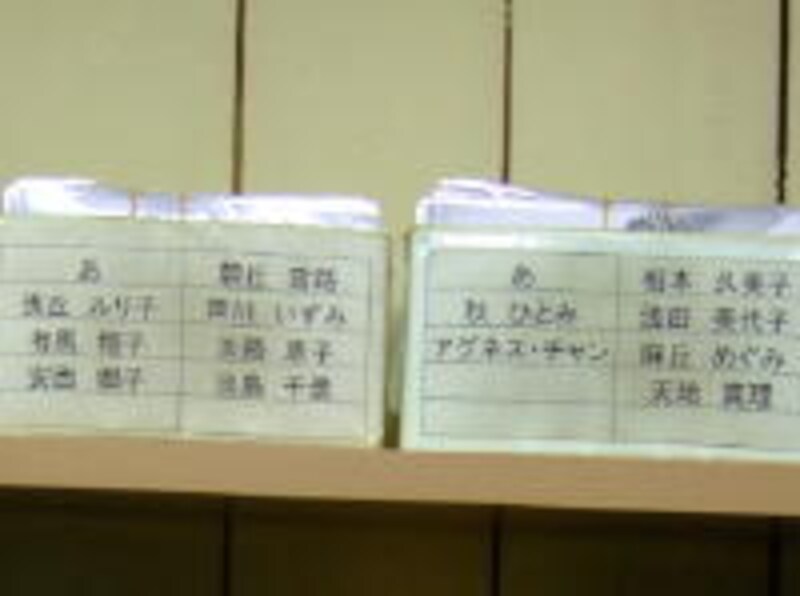 あ
浅丘 ルリ子
有馬 稲子
朝丘 雪路
いずみ
淡路 恵子
千景
あ
ひとみ
アグネス・チャン
相本 久美子
浅田 美代子
麻丘 めぐみ
天地 真理